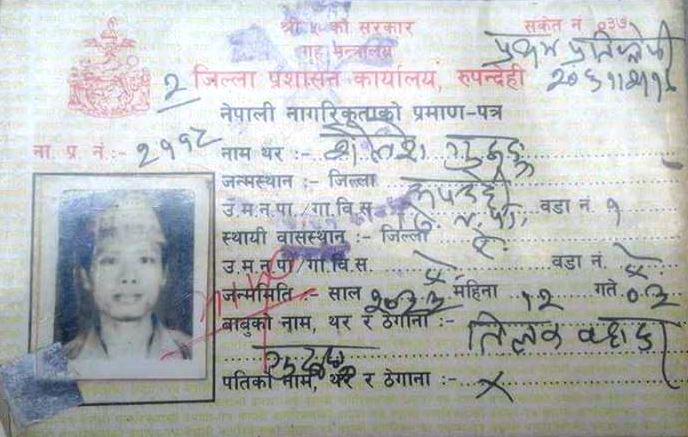 श्री ५ को सरकार
गृह मन्त्रालय
संकेत नं ०३७
प्रथम प्रतिलिपी
२ जिल्ला प्रशासन कार्यालय, रुपन्देही
नेपाली नागरिकताको प्रमाण-पत्र
ना. प्र. नं. :- २११८
नाम थर :- शैलेश गुरुङ
जन्मस्थान :- जिल्ला रुपन्देही
उ.म.न.पा./गा.वि.स. वडा नं. १
स्थायी वासस्थान :- जिल्ला ऐ.
उ.म.न.पा/गा.वि.स. ऐ वडा नं. ऐ
जन्ममिति :- साल २०३३ महिना १२ गते ०३
बाबुको नाम, थर र ठेगाना :- तिलक वहादुर
गुरुङ
पतिको नाम, थर र ठेगाना :- ×